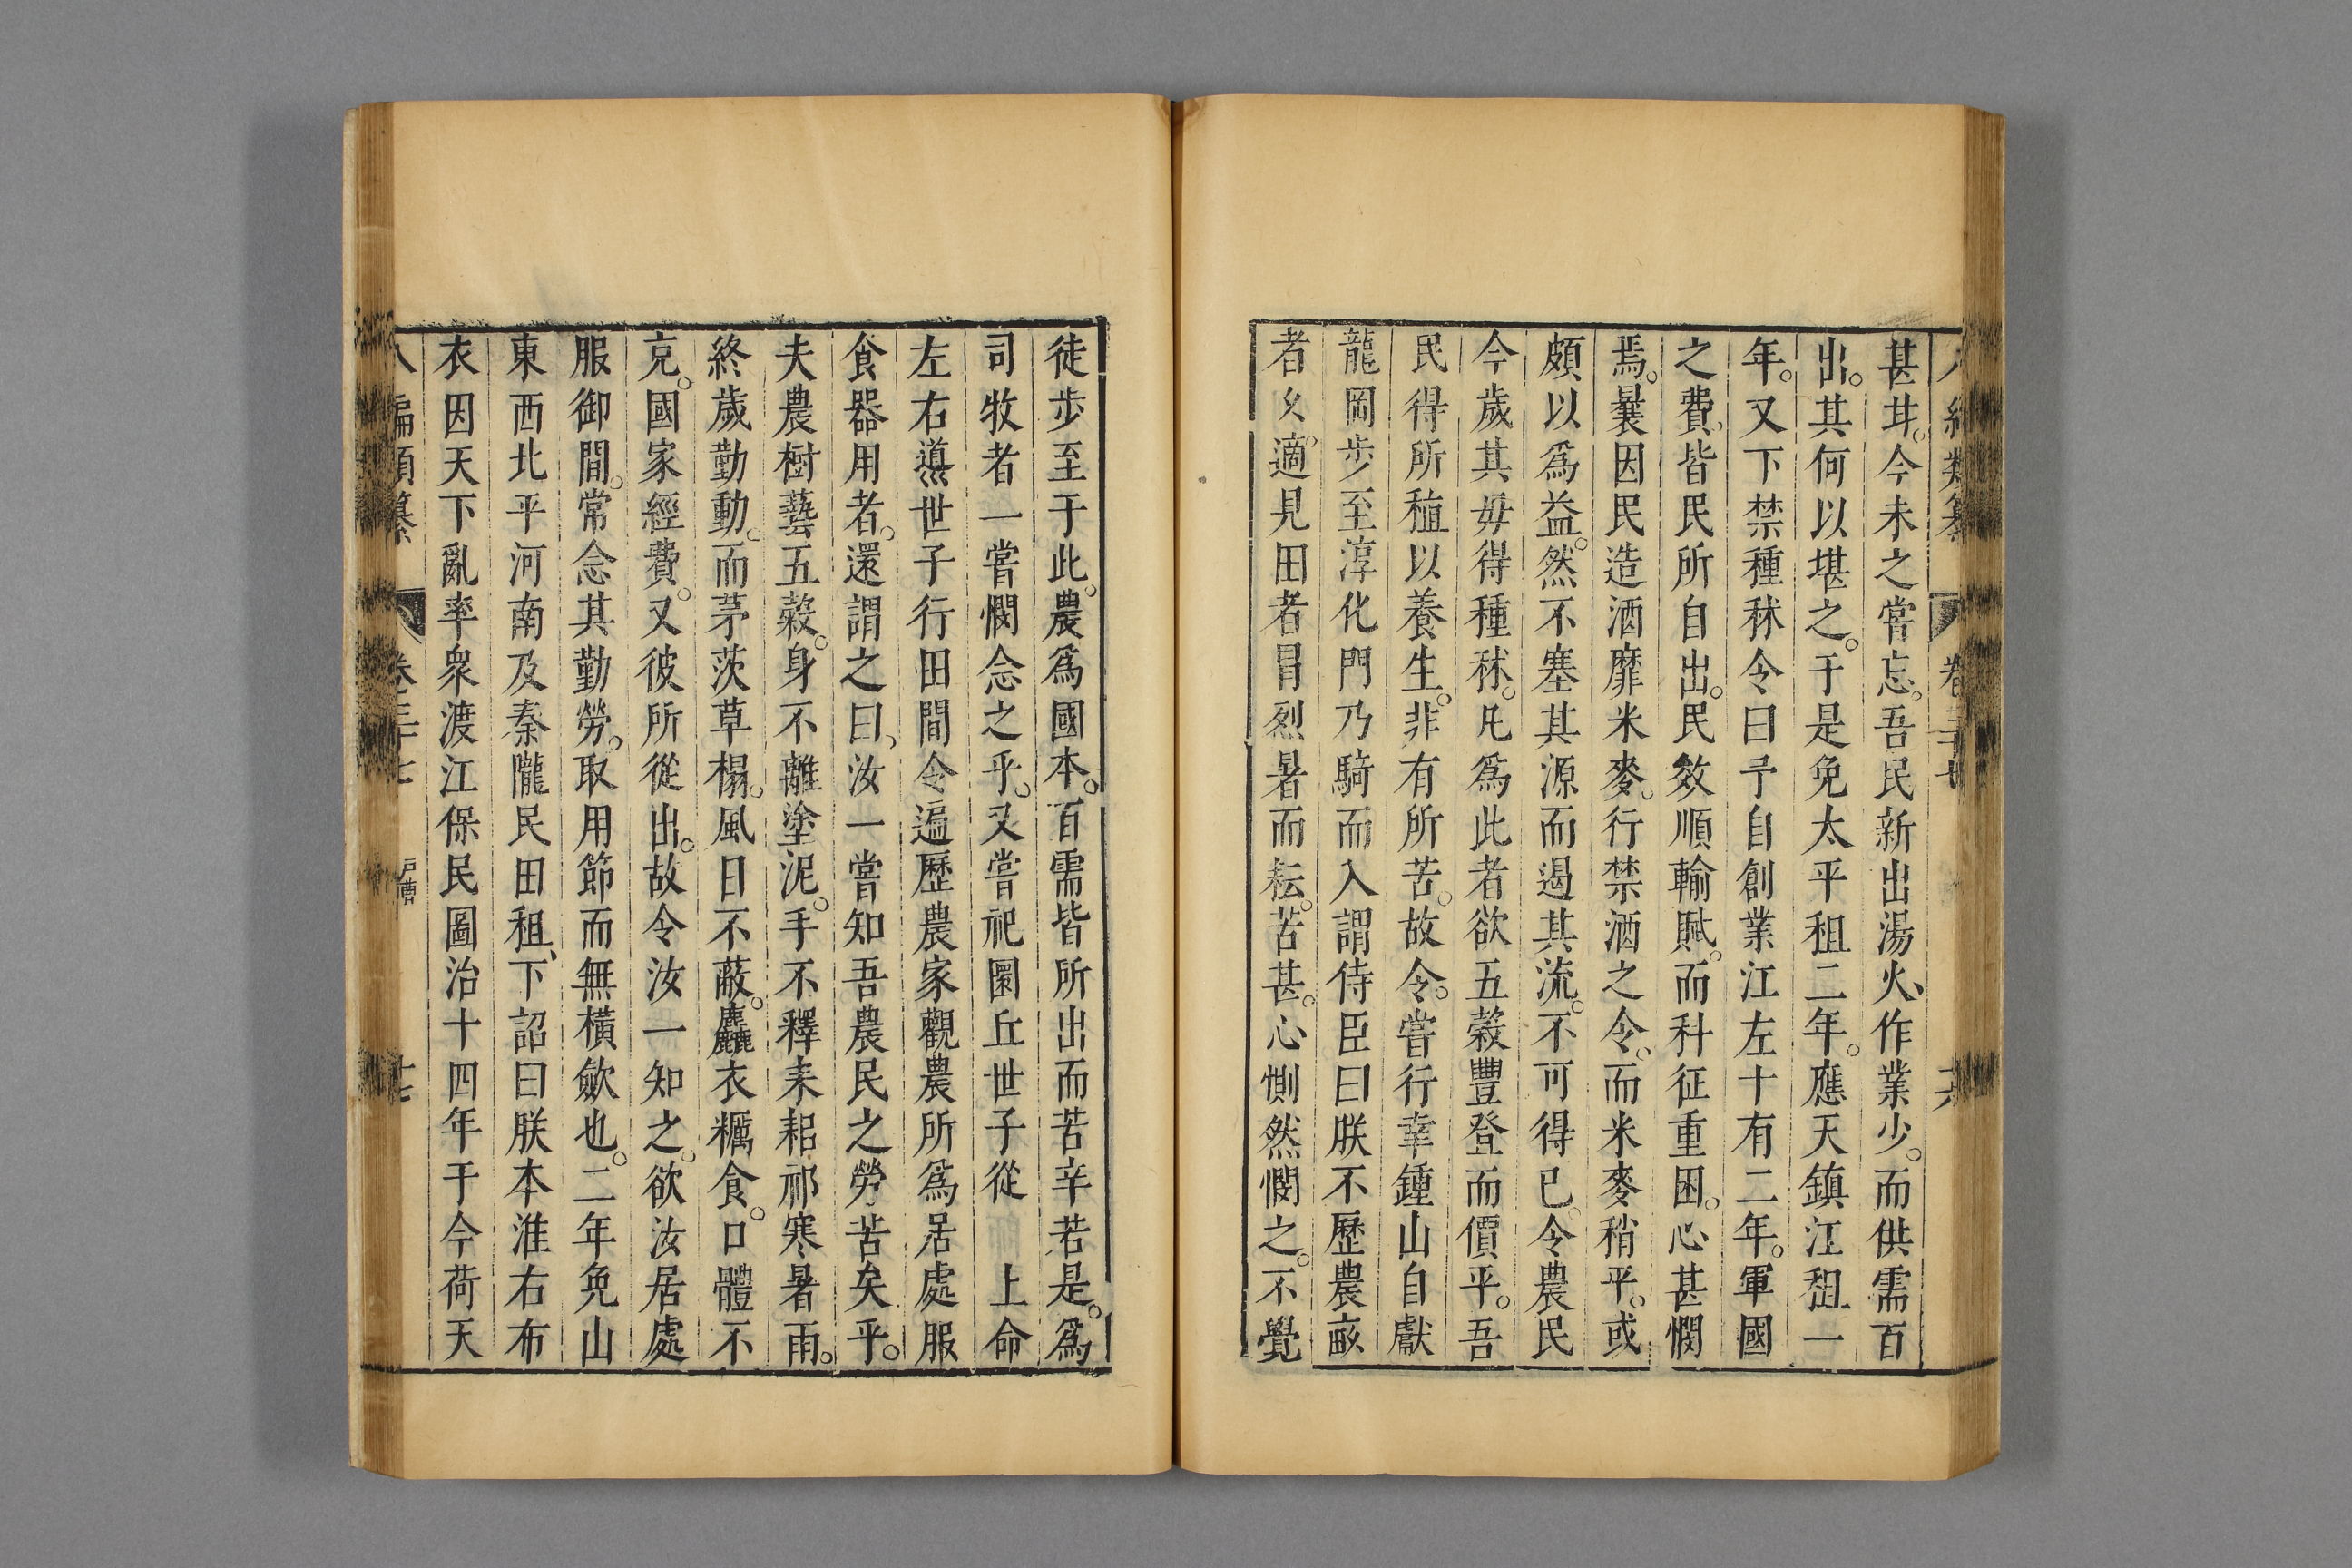 甚甘。今未之嘗忘。吾民新出湯火、作業少。而供需百
出。其何以堪之。于是免太平租二年。應天鎮江租一
年。又下禁種秫令曰予自創業江左十有二年。軍國
之費。皆民所自出。民效順輸賦。而科征重困。心甚憫
焉。曩因民造酒靡米麥。行禁酒之令。而米麥稍平。或
頗以爲益。然不塞其源而遏其流。不可得已。令農民
今歲其毋得種秫。凡爲此者欲五穀豐登而價平。吾
民得所穜以養生。非有所苦。故令。嘗行幸鍾山自獻
龍岡步至淳化門乃騎而入謂侍臣曰朕不歷農畝
者久。適見田者冒烈暑而耘。苦甚。心惻然憫之。不覺
徒步至于此。農爲國本。百需皆所出而苦辛若是。爲
司牧者一嘗憫念之乎。又嘗祀圜丘世子從　上命
左右導世子行田間令遍歷農家觀農所爲居處服
食器用者。還謂之曰、汝一嘗知吾農民之勞苦矣乎。
夫農樹藝五穀。身不離塗泥。手不釋耒耜祁寒暑雨。
終歲勤動。而茅茨草榻。風日不蔽。麤衣糲食。口體不
克。國家經費。又彼所從出。故令汝一知之。欲汝居處
服御間。常念其勤勞。取用節而無橫斂也。二年免山
東西北平河南及秦隴民田租、下詔曰朕本淮右布
衣因天下亂率衆渡江保民圖治十四年于今荷天
卷三十七　戶曹　十七